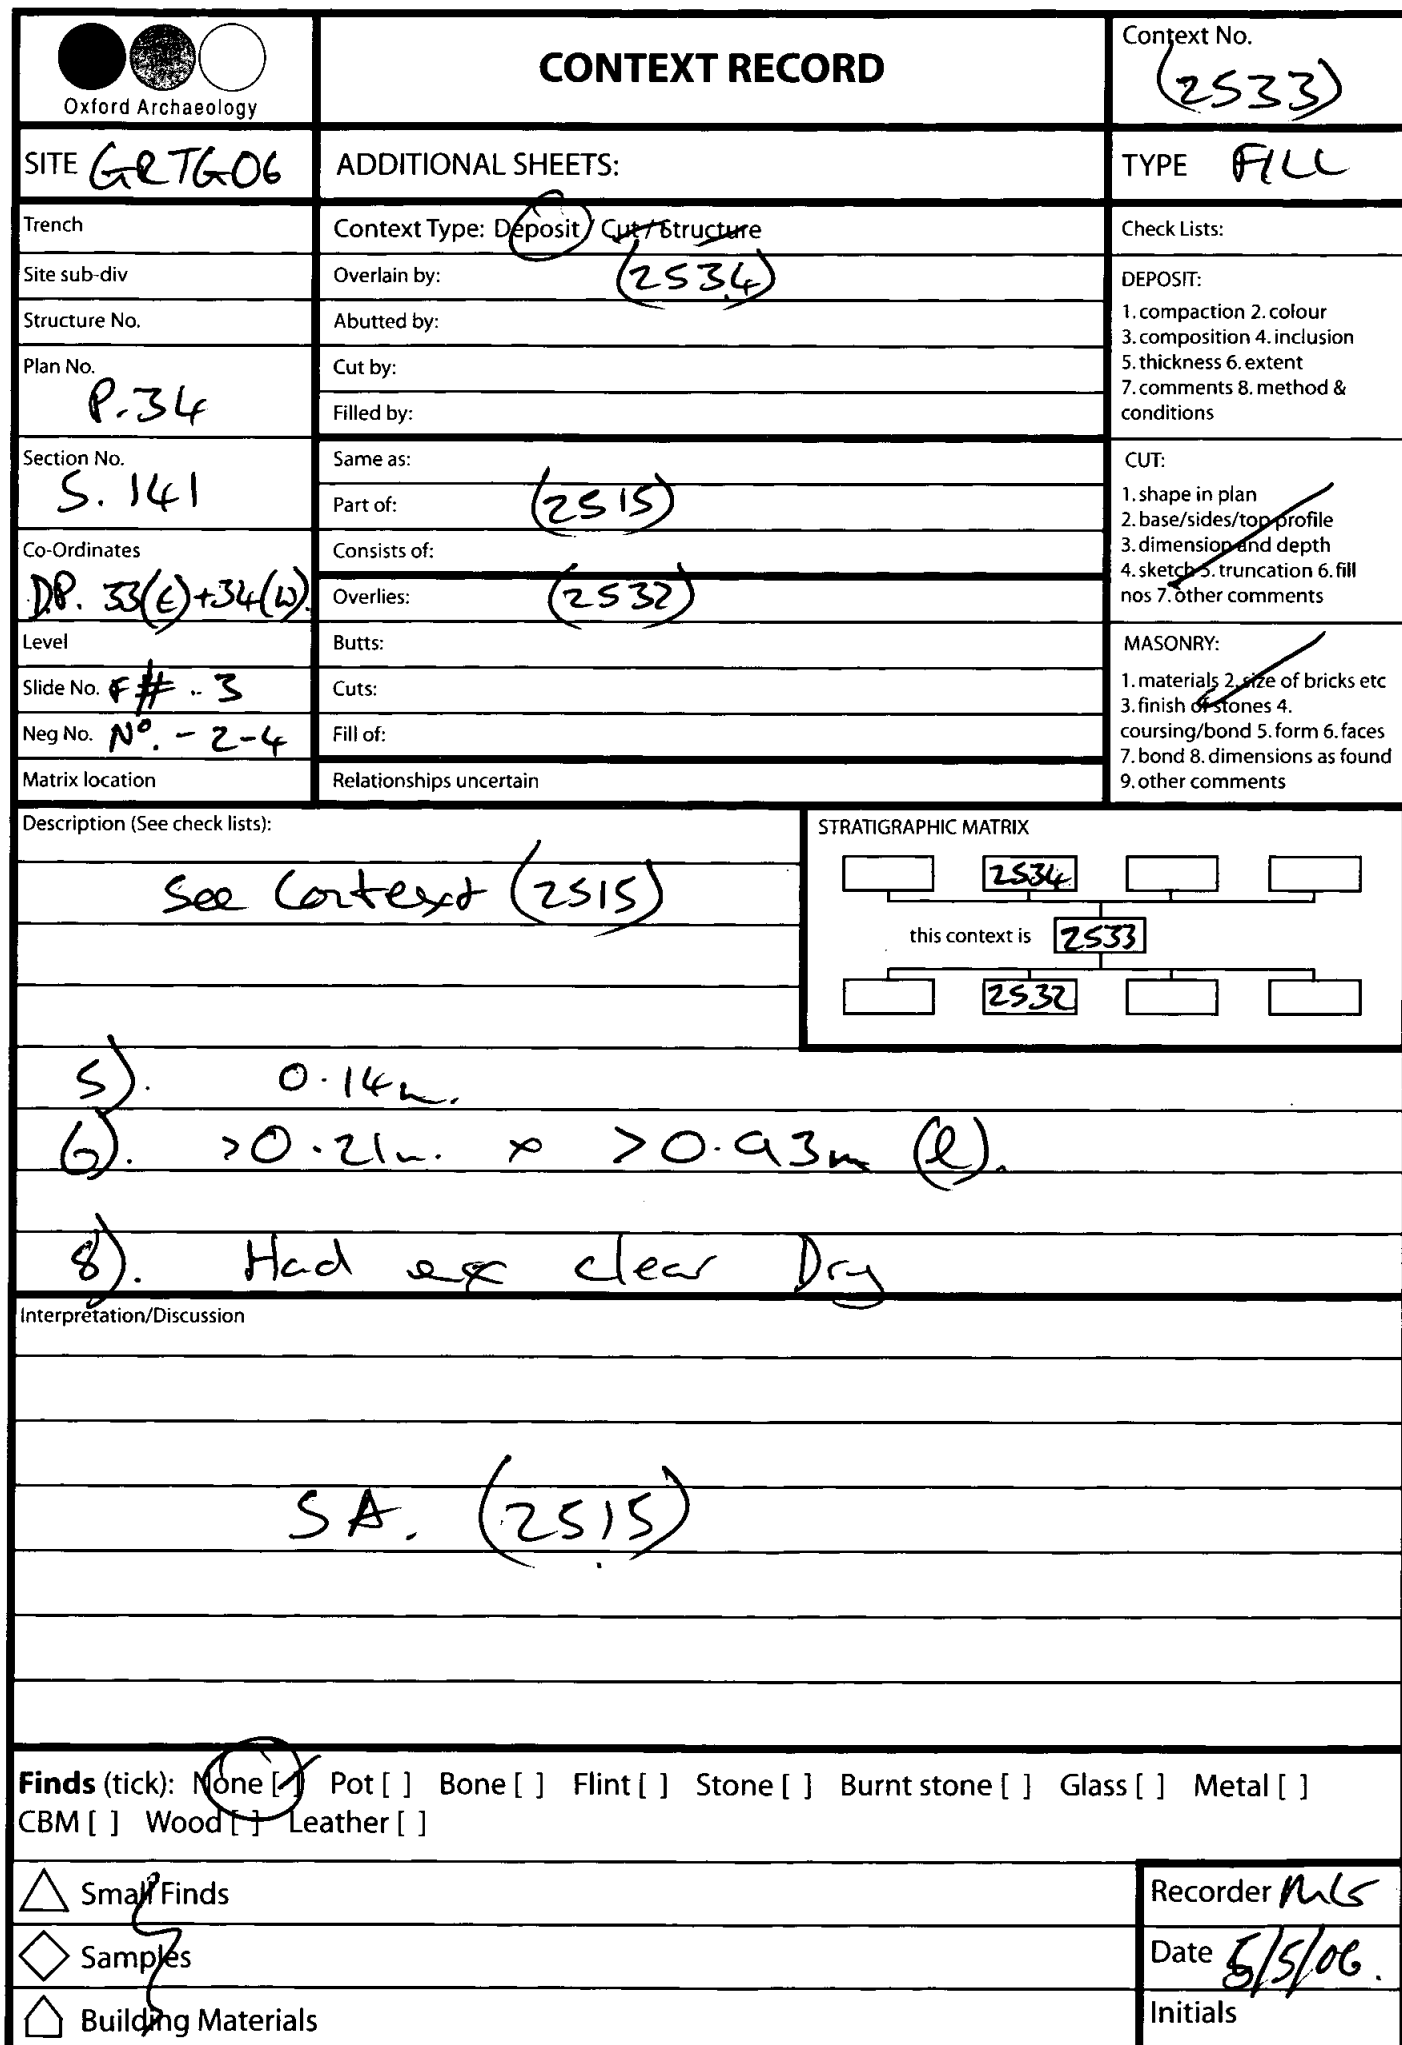 Oxford Archaeology
CONTEXT RECORD
Context No.
(2533)
SITE GRTG06
ADDITIONAL SHEETS:
TYPE FILL
Trench
Site sub-div
Structure No.
Plan No.
P.34
Section No.
S. 141
Co-Ordinates
D.P. 33(E)+34(W).
Level
Slide No. F# - 3
Neg No. Nº. - 2-4
Matrix location
Context Type: Deposit / Cut / Structure
Overlain by: (2534)
Abutted by:
Cut by:
Filled by:
Same as:
Part of: (2515)
Consists of:
Overlies: (2532)
Butts:
Cuts:
Fill of:
Relationships uncertain
Check Lists:
DEPOSIT:
1. compaction 2. colour
3. composition 4. inclusion
5. thickness 6. extent
7. comments 8. method &
conditions
CUT:
1. shape in plan
2. base/sides/top profile
3. dimension and depth
4. sketch 5. truncation 6. fill
nos 7. other comments
MASONRY:
1. materials 2. size of bricks etc
3. finish of stones 4.
coursing/bond 5. form 6. faces
7. bond 8. dimensions as found
9. other comments
Description (See check lists):
See Context (2515)
STRATIGRAPHIC MATRIX
2534
this context is 2533
2532
5). 0.14m.
6). >0.21m. x >0.93m (l).
8). Had ex clear Dry
Interpretation/Discussion
SA. (2515)
Finds (tick): None [ ] Pot [ ] Bone [ ] Flint [ ] Stone [ ] Burnt stone [ ] Glass [ ] Metal [ ]
CBM [ ] Wood [ ] Leather [ ]
Small Finds
Samples
Building Materials
Recorder
Date 5/5/06.
Initials